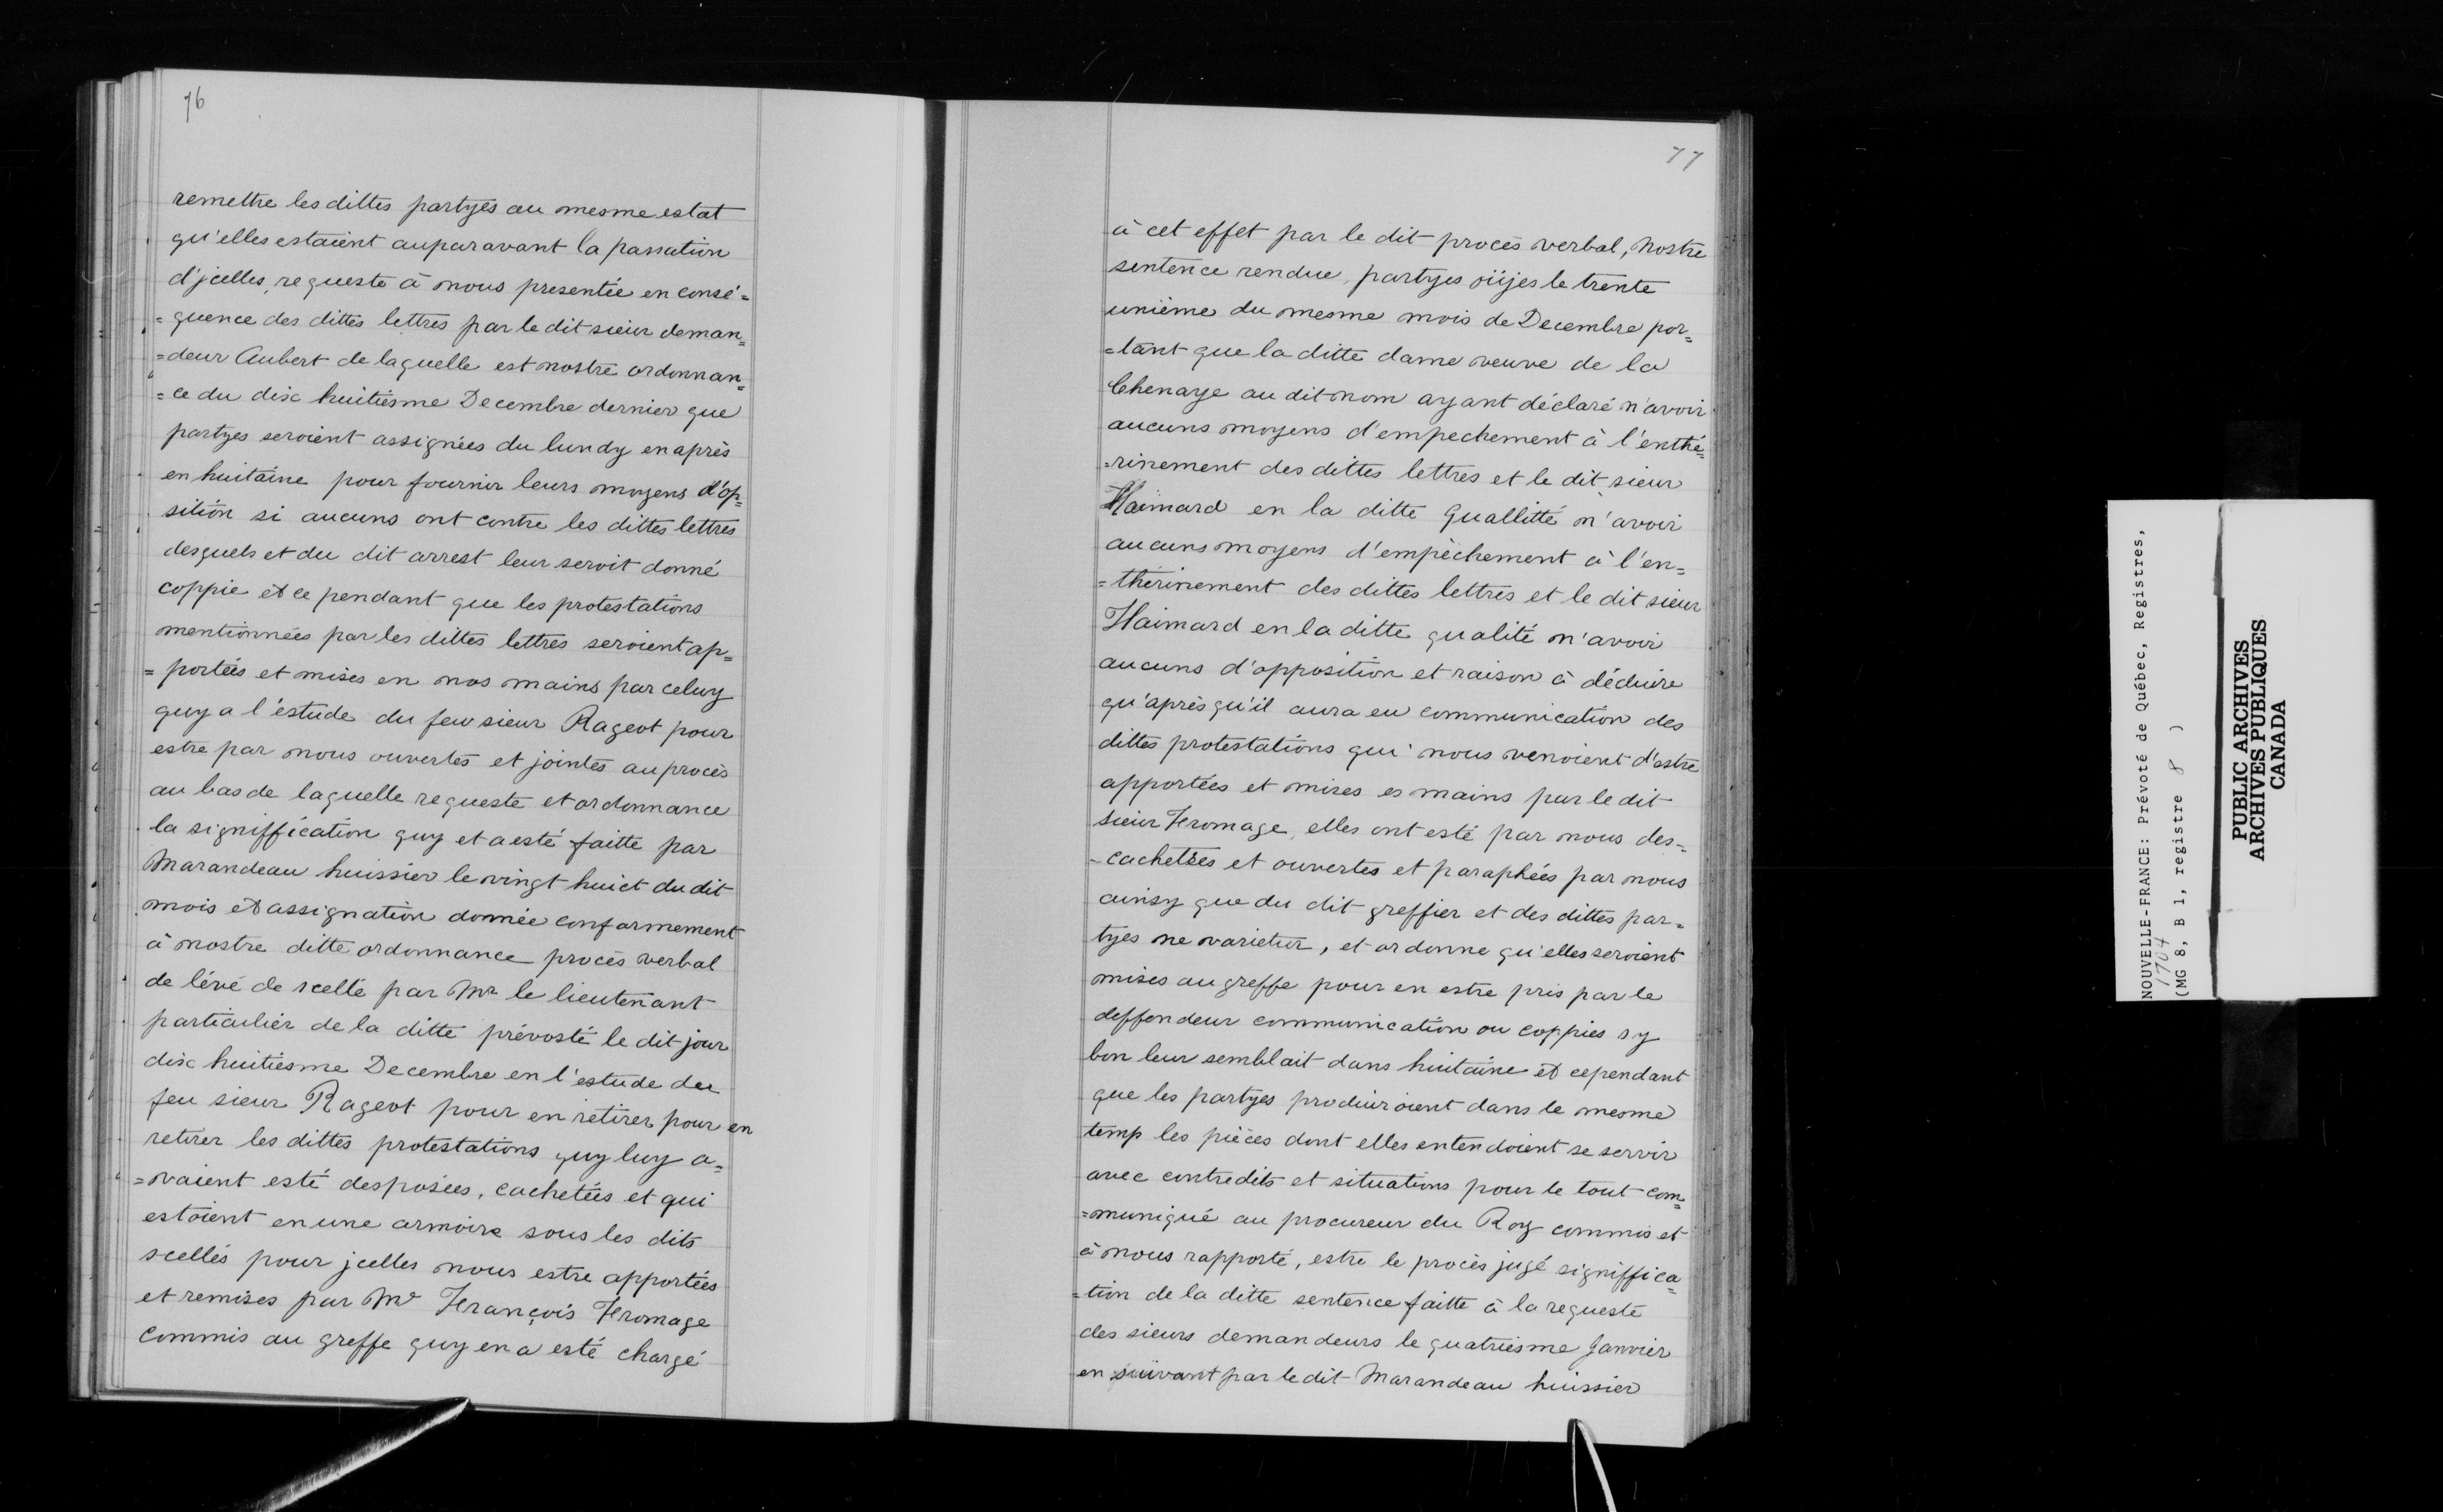 76
remettre les dittes partyes au mesme estat
qu'elles estaient auparavant la passation
d'jcelles, requeste à nous presentée en consé=
=quence des dittes lettres par le dit sieur deman=
=deur Aubert de laquelle est nostre ordonnan=
=ce du dix huitiesme Decembre dernier que
partyes seroient assignées du lundy en après
en huitaine pour fournir leurs moyens d'op=
sition si aucuns ont contre les dittes lettres
desquels et du dit arrest leur seroit donné
coppie et ce pendant que les protestations
mentionnées par les dittes lettres seroient ap=
=portées et mises en nos mains par celuy
quy a l'estude du feu sieur Rageot pour
estre par nous ouvertes et jointes au procès
au bas de laquelle requeste et ordonnance
la signiffication quy et a esté faitte par
Marandeau huissier le vingt huict du dit
mois et assignation donnée conformement
à nostre ditte ordonnance procès verbal
de lévé de scellé par Mr le lieutenant
particulier de la ditte prévosté le dit jour
dix huitiesme Decembre en l'estude du
feu sieur Rageot pour en retirer pour en
retirer les dittes protestations quy luy a=
=vaient esté desposées, cachetées et qui
estoient en une armoire sous les dits
scellés pour jcelles nous estre apportées
et remises par Me François Fromage
commis au greffe quy en a esté chargé
77
à cet effet par le dit procès verbal, Nostre
sentence rendue, partyes oüjes le trente
unième du mesme mois de Decembre por=
=tant que la ditte dame veuve de la
Chenaye au dit nom ayant déclaré n'avoir
aucuns moyens d'empechement à l'enthé=
=rinement des dittes lettres et le dit sieur
Haimard en la ditte quallitté n'avoir
aucuns moyens d'empèchement à l'en=
=thérinement des dittes lettres et le dit sieur
Haimard en la ditte qualité n'avoir
aucuns d'opposition et raison à déduire
qu'après qu'il aura eu communication des
dittes protestations qui nous venoient d'estre
apportées et mises es mains par le dit
sieur Fromage, elles ont esté par nous des=
-cachetées et ouvertes et paraphées par nous
ainsy que du dit greffier et des dittes par=
tyes ne varietur, et ordonne qu'elles seroient
mises au greffe pour en estre pris par le
deffendeur communication ou coppies sy
bon leur semblait dans huitaine et cependant
que les partyes produiroient dans le mesme
temp les pièces dont elles entendoient se servir
avec contredits et situations pour le tout com=
=muniqué au procureur du Roy commis et
à nous rapporté, estre le procès jugé signiffica=
=tion de la ditte sentence faitte à la requeste
des sieurs demandeurs le quatriesme Janvier
en suivant par le dit Marandeau huissier
NOUVELLE-FRANCE: Prévoté de Québec, Registres,
1704
(MG 8, B 1, registre 8 )
PUBLIC ARCHIVES
ARCHIVES PUBLIQUES
CANADA